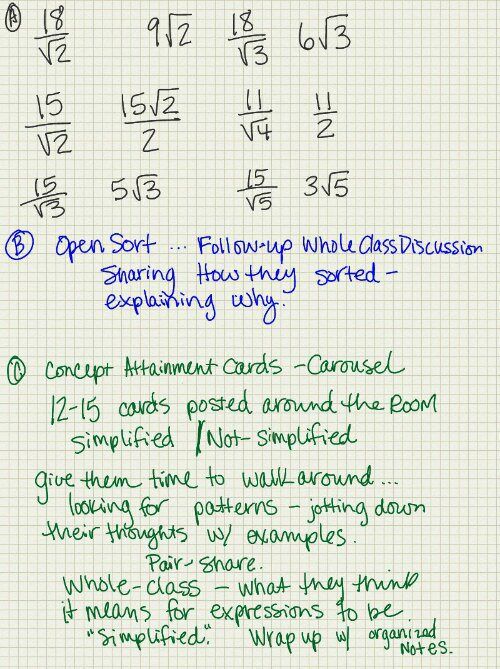 Ⓐ 18/√2 9√2 18/√3 6√3
15/√2 15√2/2 11/√4 11/2
15/√3 5√3 15/√5 3√5
Ⓑ Open Sort ... Follow-up Whole Class Discussion
Sharing How they sorted -
explaining why.
Ⓒ Concept Attainment Cards - Carousel
12-15 cards posted around the Room
simplified / Not-simplified
give them time to walk around ...
looking for patterns - jotting down
their thoughts w/ examples.
Pair-share.
Whole-class - what they think
it means for expressions to be
"simplified". Wrap up w/ organized
Notes.